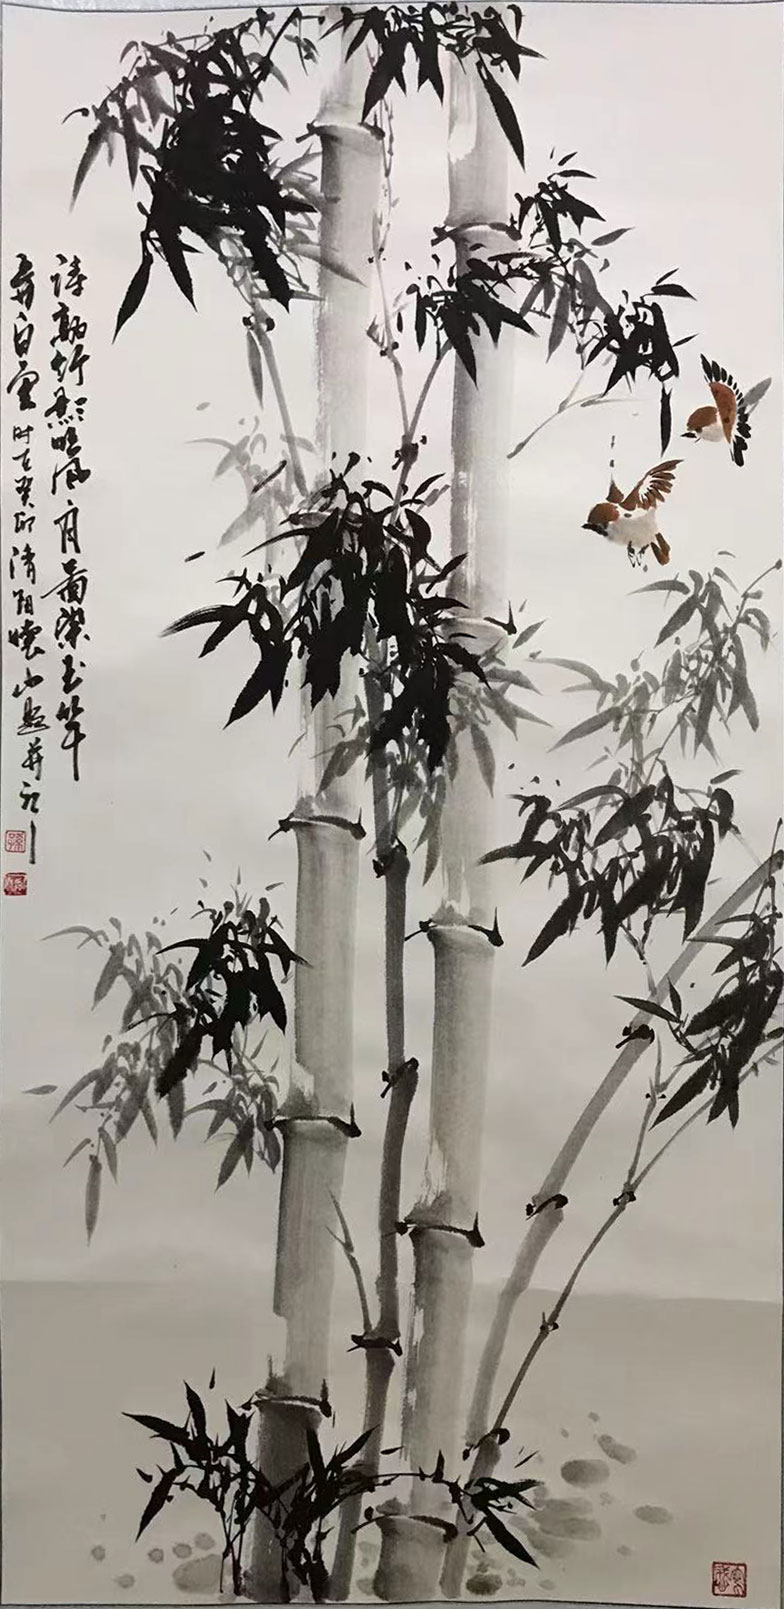 诗敲竹影吟风月画染玉竿
弄白云 时在癸卯清阳晓山题并记